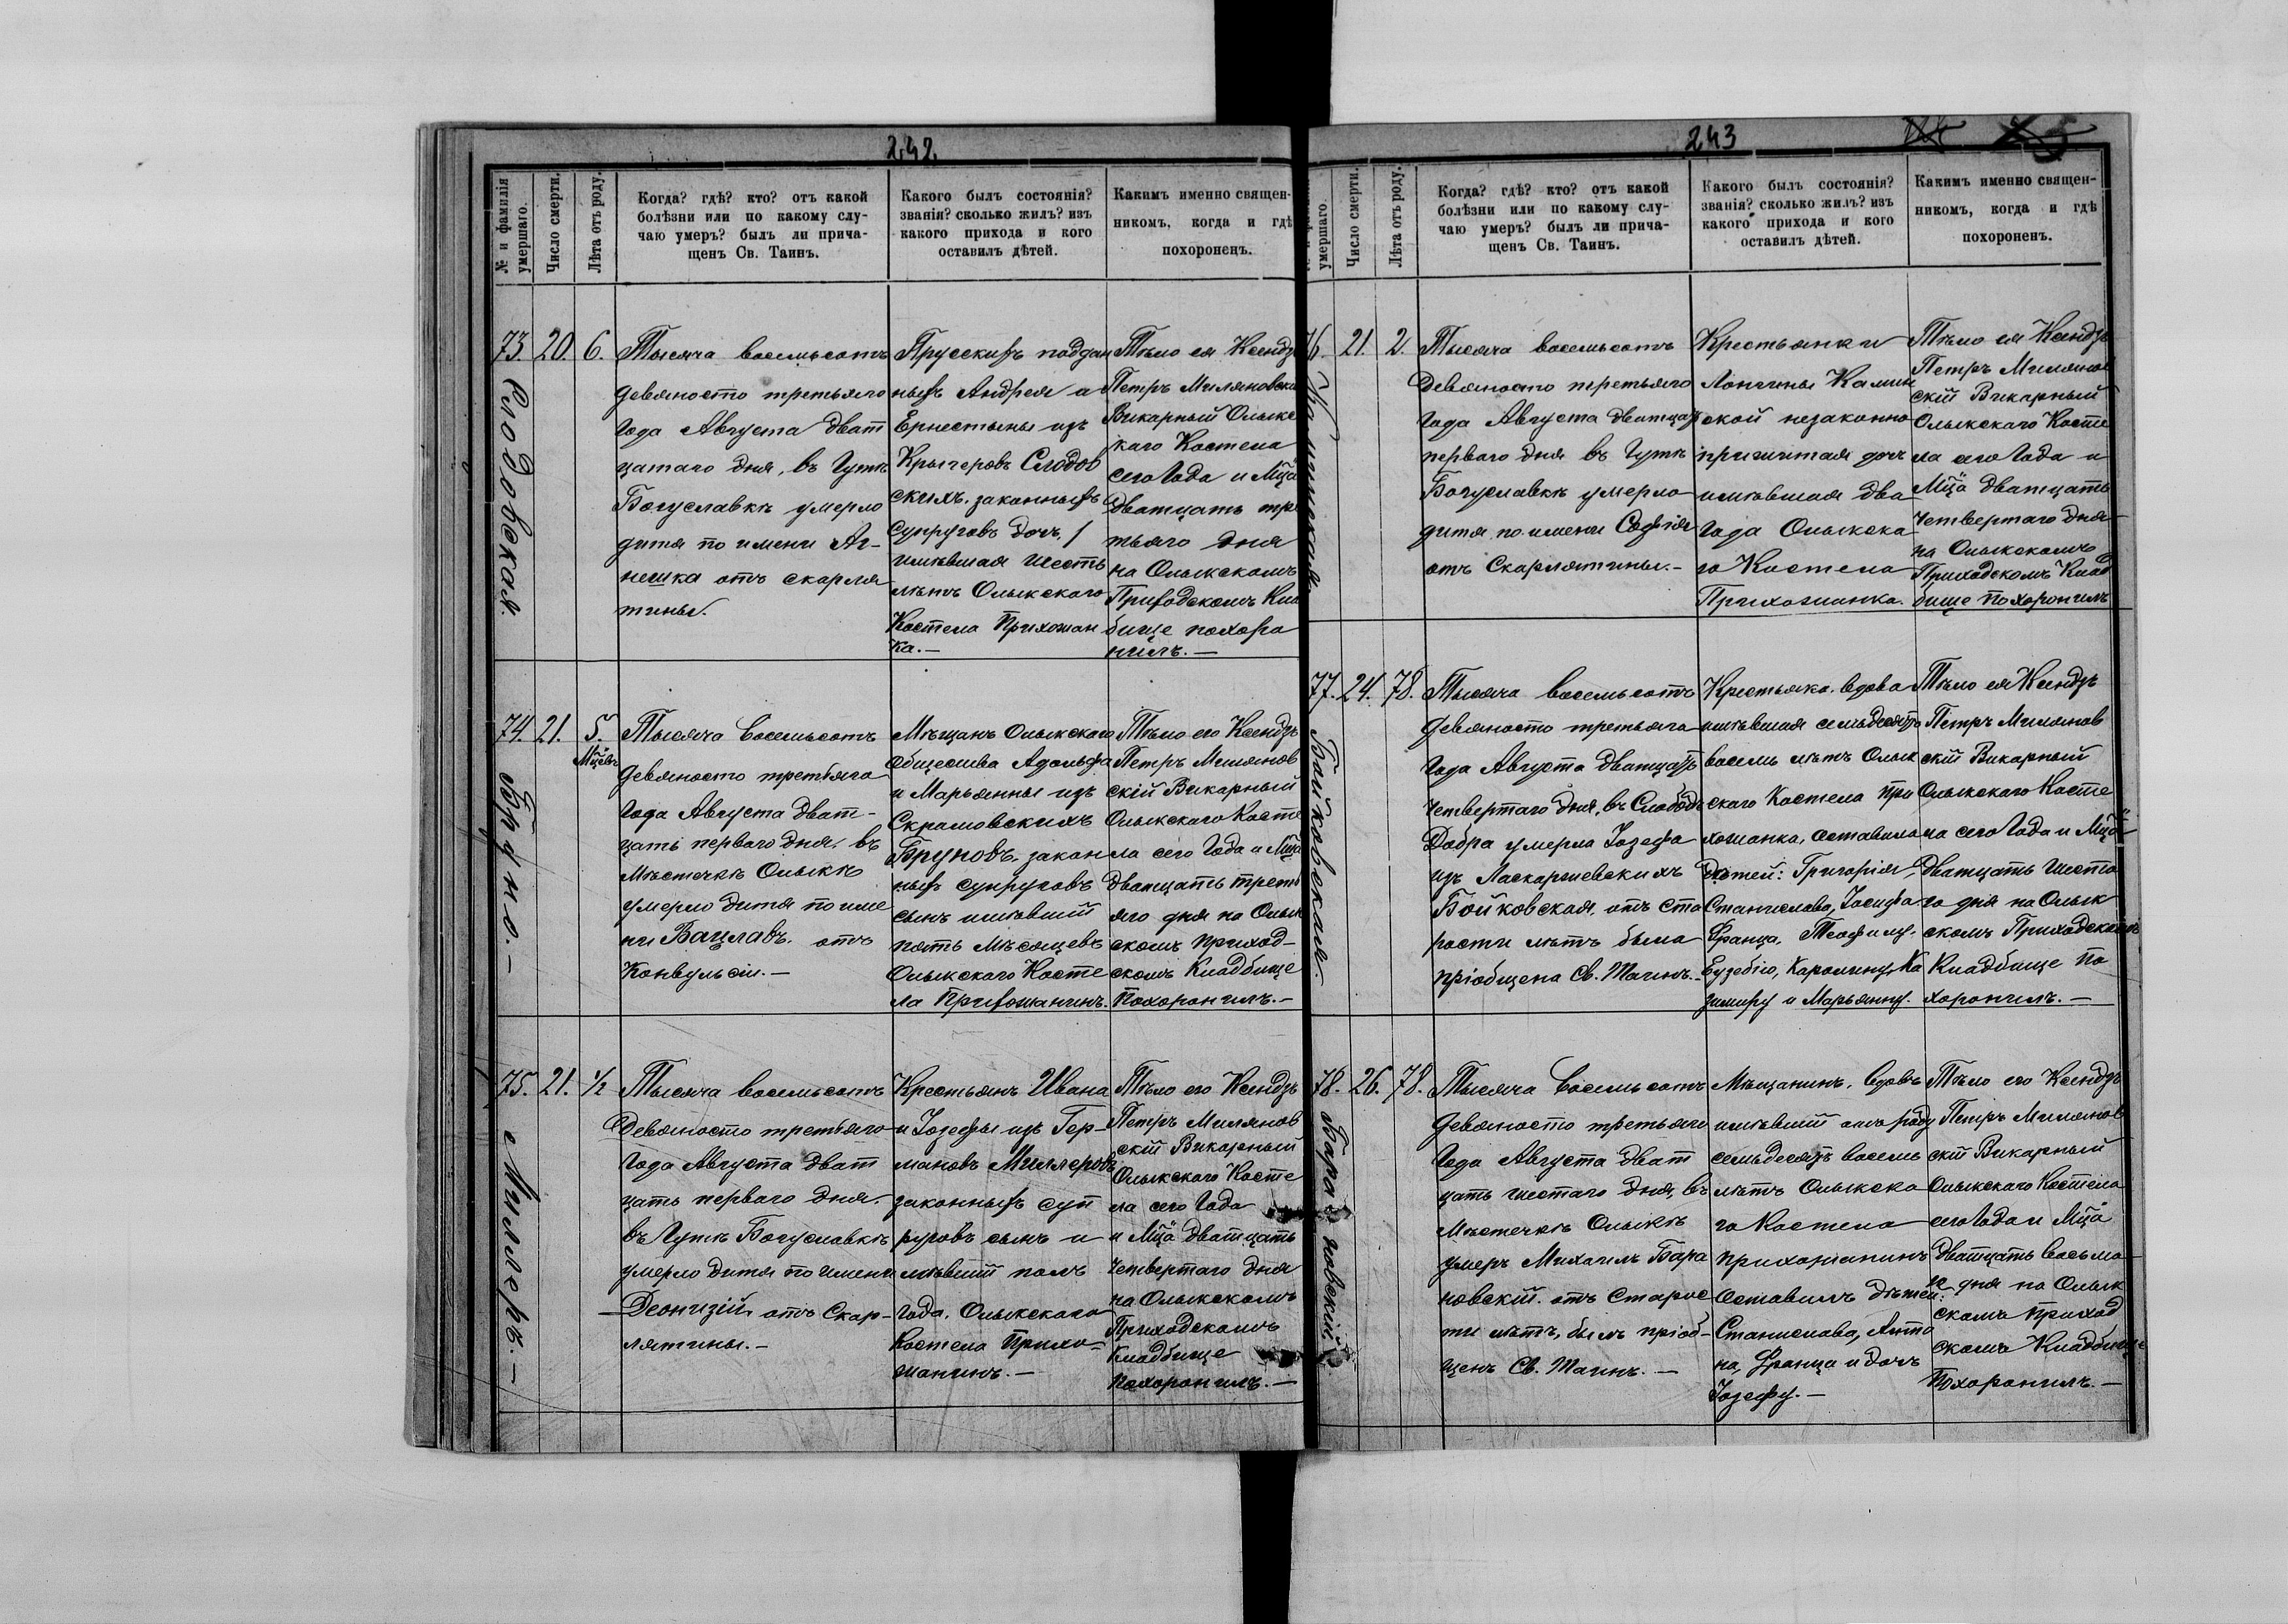 242.
№ и фамилія умершаго.
Число смерти.
Лѣта отъ роду.
Когда? гдѣ? кто? отъ какой
болѣзни или по какому слу-
чаю умеръ? былъ ли прича-
щенъ Св. Таинъ.
Какого былъ состоянія?
званія? сколько жилъ? изъ
какого прихода и кого
оставилъ дѣтей.
Какимъ именно священ-
никомъ, когда и гдѣ
похороненъ.
73.
20.
6.
Тысяча восемьсотъ
девяносто третьяго
Года Августа дват
цатаго дня, въ Гутѣ
Богуславкѣ умерло
дитя по имени Аг-
нешка отъ скарля
тины.
Прусскихъ поддан
ныхъ Андрея и
Ернестыны изъ
Крыгеровъ Слодов
скихъ, законныхъ
супруговъ дочь,
имѣвшая шесть
лѣтъ Олыкского
Костела Прихожан
ка.—
Тѣло ея Ксендзъ
Петръ Миляновски
Викарный Олыкс
каго Костела
сего Года и Мца
Дватцать тре
тьяго дня
на Олыкскомъ
Приходскомъ Кла
бище похоро
нилъ.—
74.
21.
5.
Мцевъ
Бруно.—
Тысяча восемьсотъ
девяносто третьяго
Года Августа дват-
цать перваго дня, въ
Мѣстечкѣ Олыкѣ
умерло дитя по име
ни Вацлавъ, отъ
Конвульсіи.—
Мѣщанъ Олыкского
Общества Адольфа
и Марьянны изъ
Скрамовскихъ
Бруновъ, закон
ныхъ супруговъ
сынъ имѣвшій
пять Мѣсяцевъ
Олыкского Косте
ла Прихожанинъ.
Тѣло его Ксендзъ
Петръ Милянов
скій Викарный
Олыкского Косте
ла сего Года и Мца
Дватцать треть
яго дня на Олык
скомъ приход-
скомъ Кладбище
Похоронилъ.—
75.
21.
1/2
Миллеръ.—
Тысяча восемьсотъ
Девяносто третьяго
Года Августа дват
цать перваго дня.
въ Гутѣ Богуславкѣ
умерло дитя по имени
Деонизій, отъ Скар-
лятины.—
Крестьянъ Ивана
и Іозефы изъ Гер-
мановъ Миллеровъ
законныхъ суп
руговъ сынъ и
мѣвшій полъ
Года. Олыкского
Костела Прихо-
жанинъ.—
Тѣло его Ксендзъ
Петръ Милянов
скій Викарный
Олыкского Косте
ла сего Года
и Мца Дватцать
Четвертаго дня
на Олыкскомъ
Приходскомъ
Кладбище
Похоронилъ.—
243
умершаго.
Число смерти.
Лѣта отъ роду.
Когда? гдѣ? кто? отъ какой
болѣзни или по какому слу-
чаю умеръ? былъ ли прича-
щенъ Св. Таинъ.
Какого былъ состоянія?
званія? сколько жилъ? изъ
какого прихода и кого
оставилъ дѣтей.
Какимъ именно священ-
никомъ, когда и гдѣ
похороненъ.
76.
21.
2.
Тысяча восемьсотъ
Девяносто третьяго
Года Августа дватцать
перваго дня въ Гутѣ
Богуславкѣ умерло
дитя по имени Софія
отъ Скарлятины.—
Крестьянки
Лонгины Камин
ской незаконно
прижитая дочь
имѣвшая два
Года Олыкска
го Костела
Прихожанка.
Тѣло ея Ксендзъ
Петръ Милянов
скій Викарный
Олыкского Косте
ла сего Года и
Мца Дватцать
Четвертаго дня
на Олыкскомъ
Приходскомъ Клад
бище Похоронилъ
77.
24.
78.
Бойковская.
Тысяча восемьсотъ
Девяносто третьяго
Года Августа Дватцать
Четвертаго дня, въ Слободѣ
Добра умерла Іозефа
изъ Ласкаржевскихъ
Бойковская, отъ Ста
рости лѣтъ была
пріобщена Св. Таинъ.—
Крестьянка, вдова
имѣвшая семьдесятъ
восемь лѣтъ Олык
ского Костела при
хожанка, оставила
Дѣтей: Григорія,
Станислава, Іосифа
Франца, Теофилу,
Еузебію, Каролину, Ка
зимиру и Марьянну.
Тѣло ея Ксендзъ
Петръ Милянов
скій Викарный
Олыкского Косте
ла сего Года и Мца
Дватцать Шесто
го дня на Олык
скомъ Приходскомъ
Кладбище По
хоронилъ.—
78.
26.
78.
Барановскій.
Тысяча восемьсотъ
девяносто третьяго
Года Августа Дват
цать шестаго дня, въ
Мѣстечкѣ Олыкѣ
умеръ Михаилъ Бара
новскій отъ Старос
ти лѣтъ, былъ пріоб-
щенъ Св. Таинъ.—
Мѣщанинъ, вдовъ
имѣвшій отъ роду
семьдесятъ восемь
лѣтъ Олыкска
го Костела
прихожанинъ
Оставилъ дѣтей:
Станислава, Анто
на, Франца и дочь
Іозефу.—
Тѣло его Ксендзъ
Петръ Милянов
скій Викарный
Олыкского Костела
сего Года и Мца
Дватцать восьма
го дня на Олык
скомъ Приход
скомъ Кладбище
Похоронилъ.—